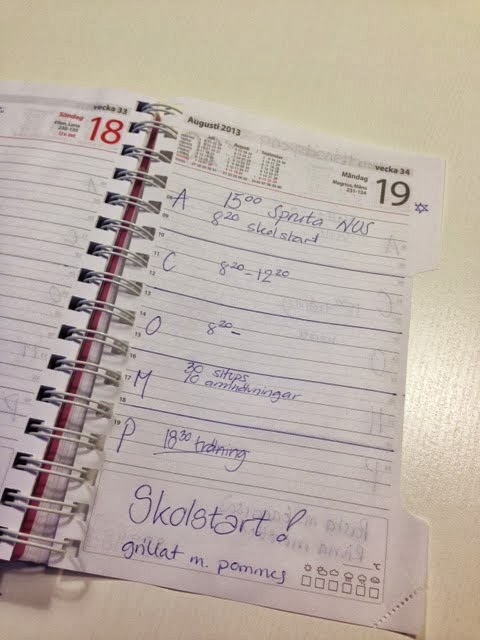 vecka 33
Söndag
Ellen, Lena
230-135
18
Augusti 2013
vecka 34
Måndag
Magnus, Måns
231-134
19
A 15⁰⁰ Spruta NUS
8²⁰ skolstart
C 8²⁰-12²⁰
O 8²⁰-
M 30 situps
10 armhävningar
P 18³⁰ träning
Skolstart!
grillat m. pommes
°C